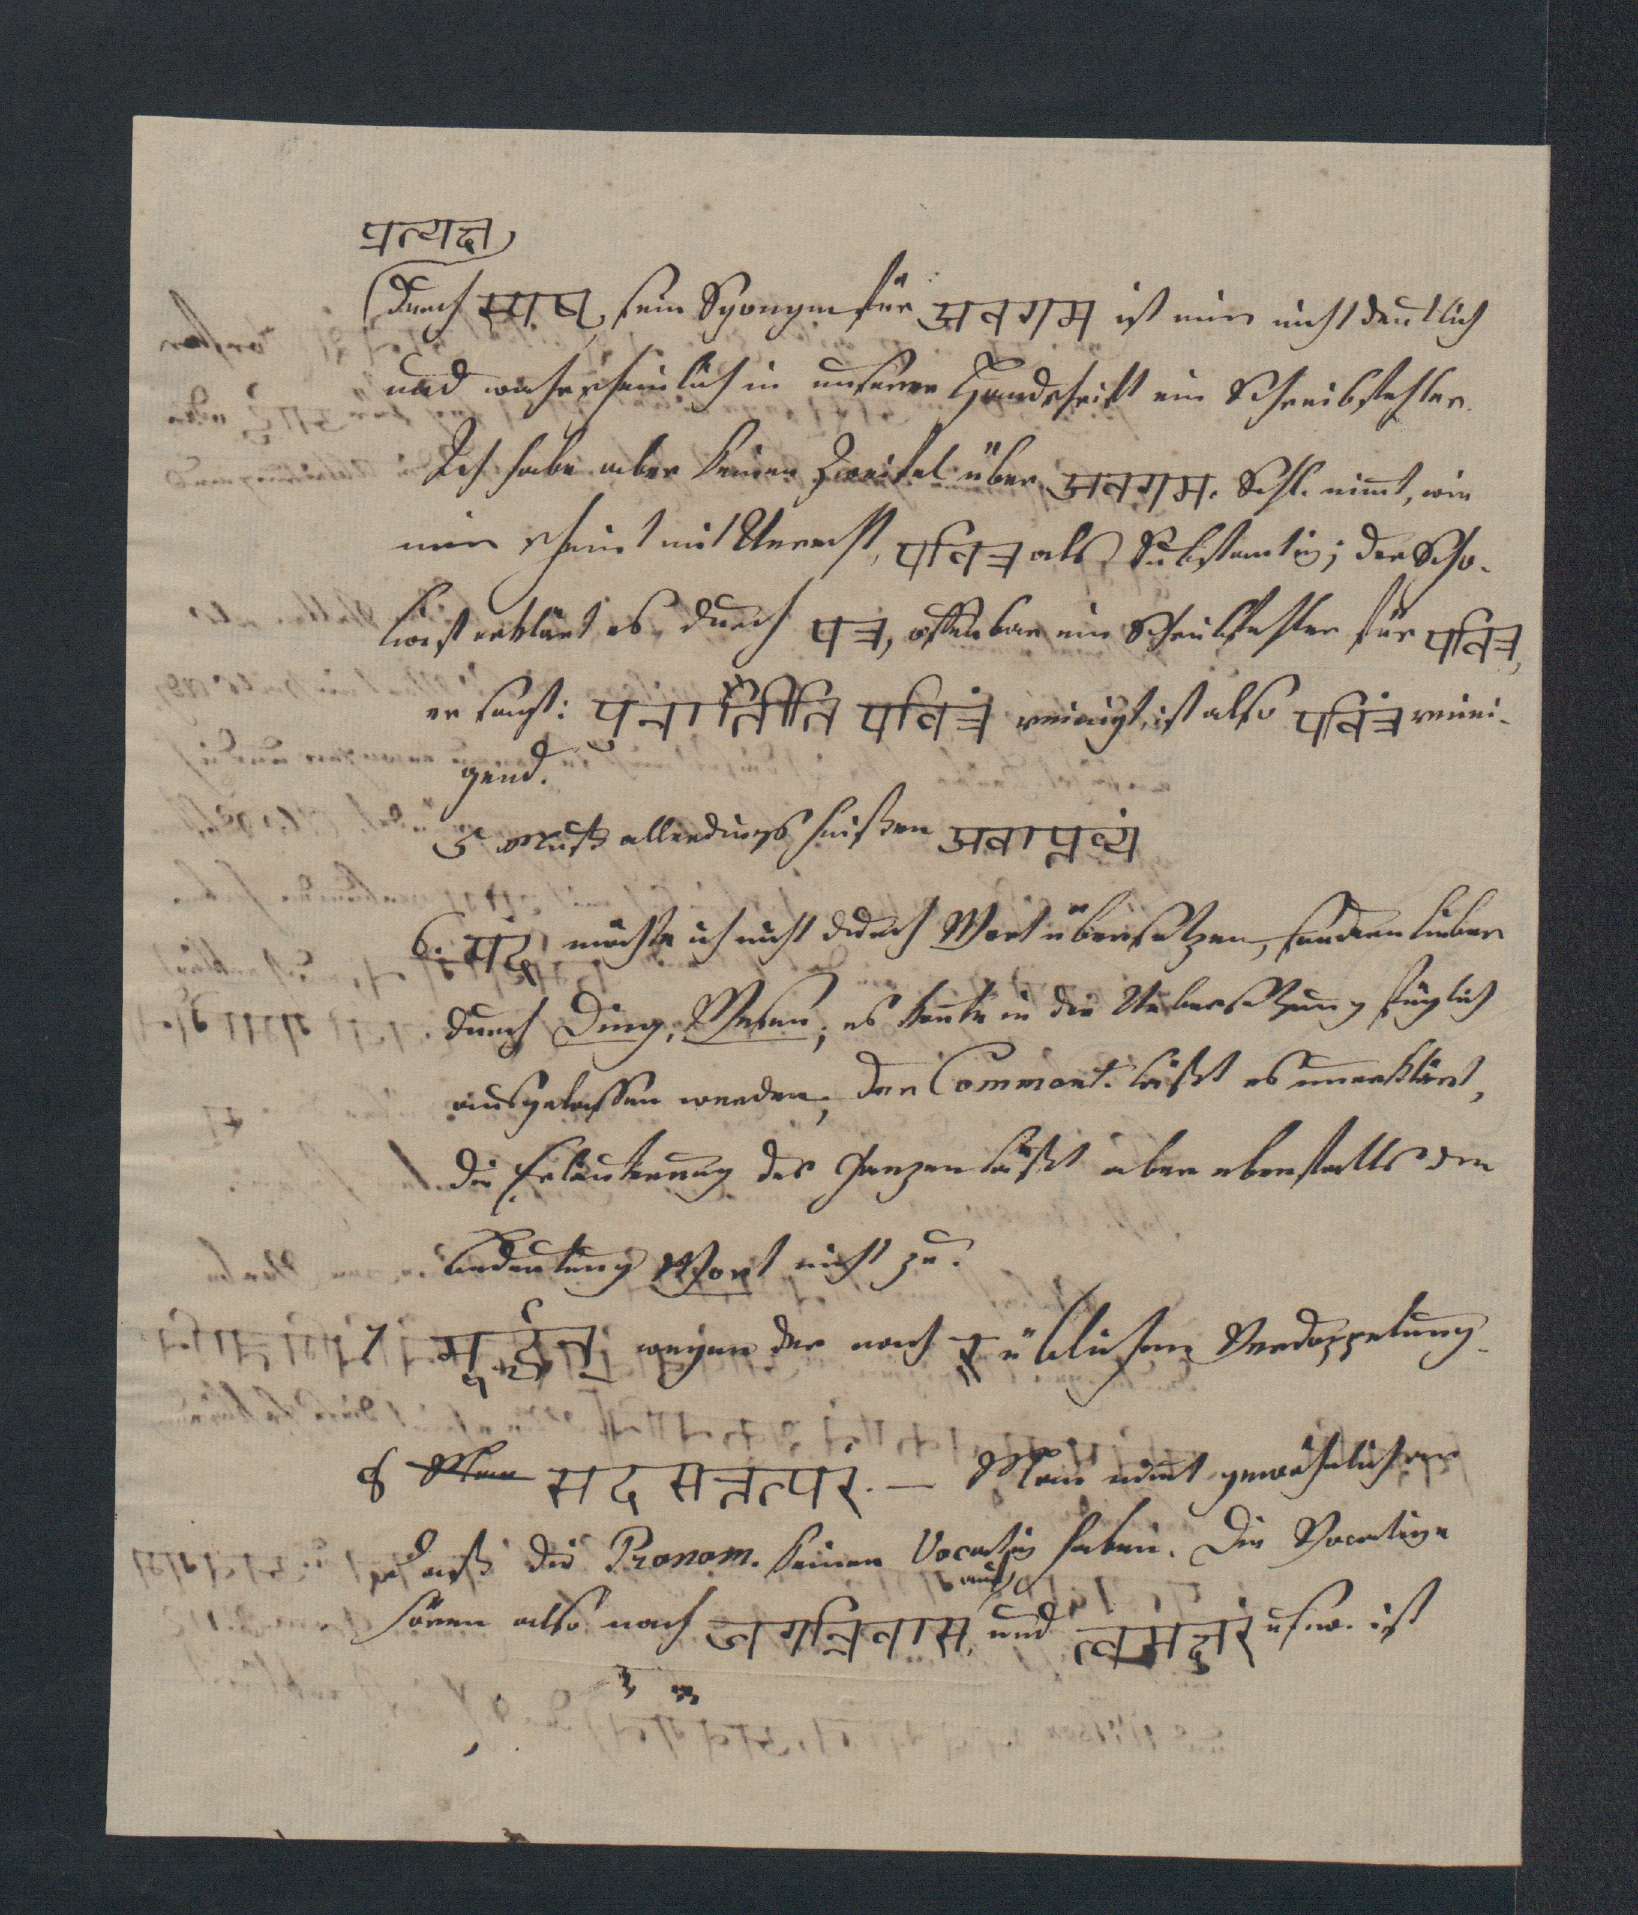 प्रत्यक्ष
durch स्पष्ट, sein Synonym für अवगम ist mir nicht deutlich
und wahrscheinlich in unserer Handschrift ein Schreibfehler.
Ich habe aber keinen Zweifel über अवगम. Schl. nimt, wie
mir scheint mit Unrecht, पवित्र als Substantiv; der Scho-
liast erklärt es durch पत्र, offenbar ein Schreibfehler für पवित्र,
er sagt: पुनातीति पवित्रं reinigt, ist also पवित्रं reini-
gend.
5 Muß allerdings heißen अवाप्तव्यं
6. पद möchte ich nicht durch Wort übersetzen, sondern lieber
durch Ding, Wesen; es konte in der Uebersetzung füglich
ausgelassen werden; der Comment. läßt es unerklärt,
die Erläuterung des Ganzen läßt aber ebenfalls die
Bedeutung Wort nicht zu.
7 मूर्द्ध्न wegen der nach र् üblichen Verdoppelung.
8 Man सदसत्तत्परं. — Man nimt gewöhnlich an
daß die Pronom. keinen Vocativ haben. Die Vocative
auf
hören also nach जगन्निवास, und त्वमक्षरं usw. ist